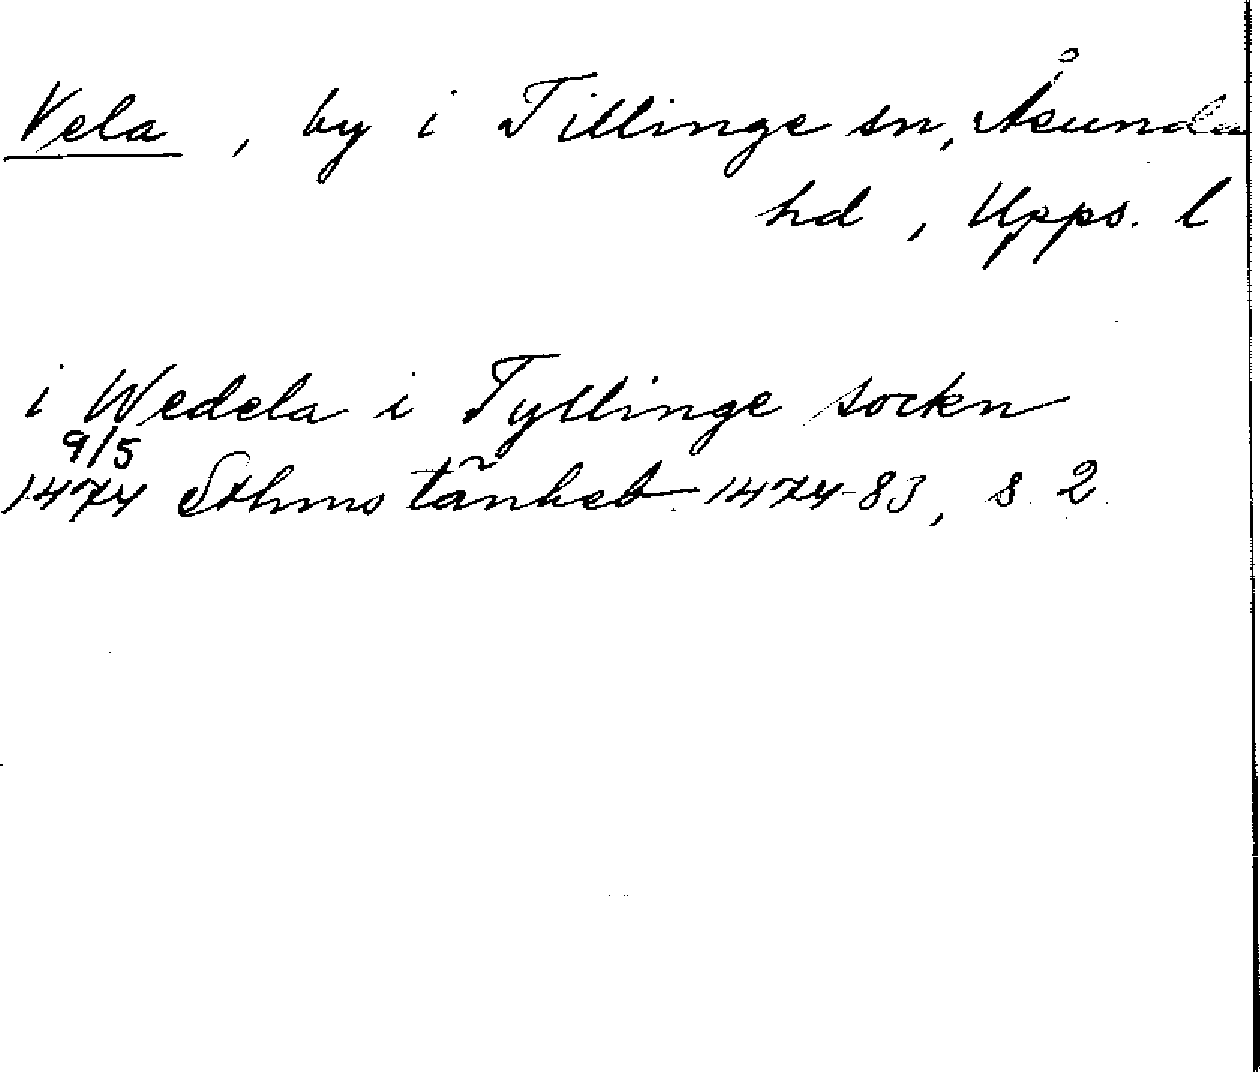 Vela, by i Tillinge sn, Åsunda
hd, Upps. l
i Wedela i Tyllinge sockn
9/5
1474 Sthms tänkeb 1474-83, s. 2